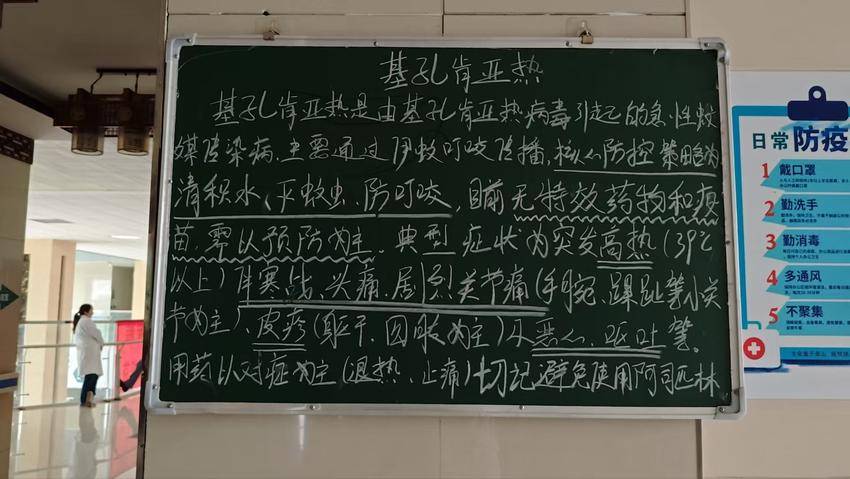 基孔肯亚热
基孔肯亚热是由基孔肯亚热病毒引起的急性蚊
媒传染病.主要通过伊蚊叮咬传播,核心防控策略为
清积水、灭蚊虫、防叮咬,目前无特效药物和疫
苗.需以预防为主 典型症状为突发高热(39℃
以上)伴寒战、头痛、剧烈关节痛(手腕、踝趾等小关
节为主)、皮疹(躯干、四肢为主)及恶心、呕吐等。
用药以对症为主(退热、止痛)切记避免使用阿司匹林
日常防疫
1 戴口罩
2 勤洗手
3 勤消毒
4 多通风
5 不聚集